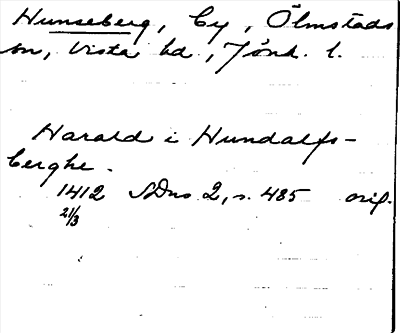 Hunseberg, by, Ölmstads
sn, Vista hd, Jönk. l.
Harald i Hundalfs-
berghe.
1412 SDns 2, s. 485 orig.
21/3